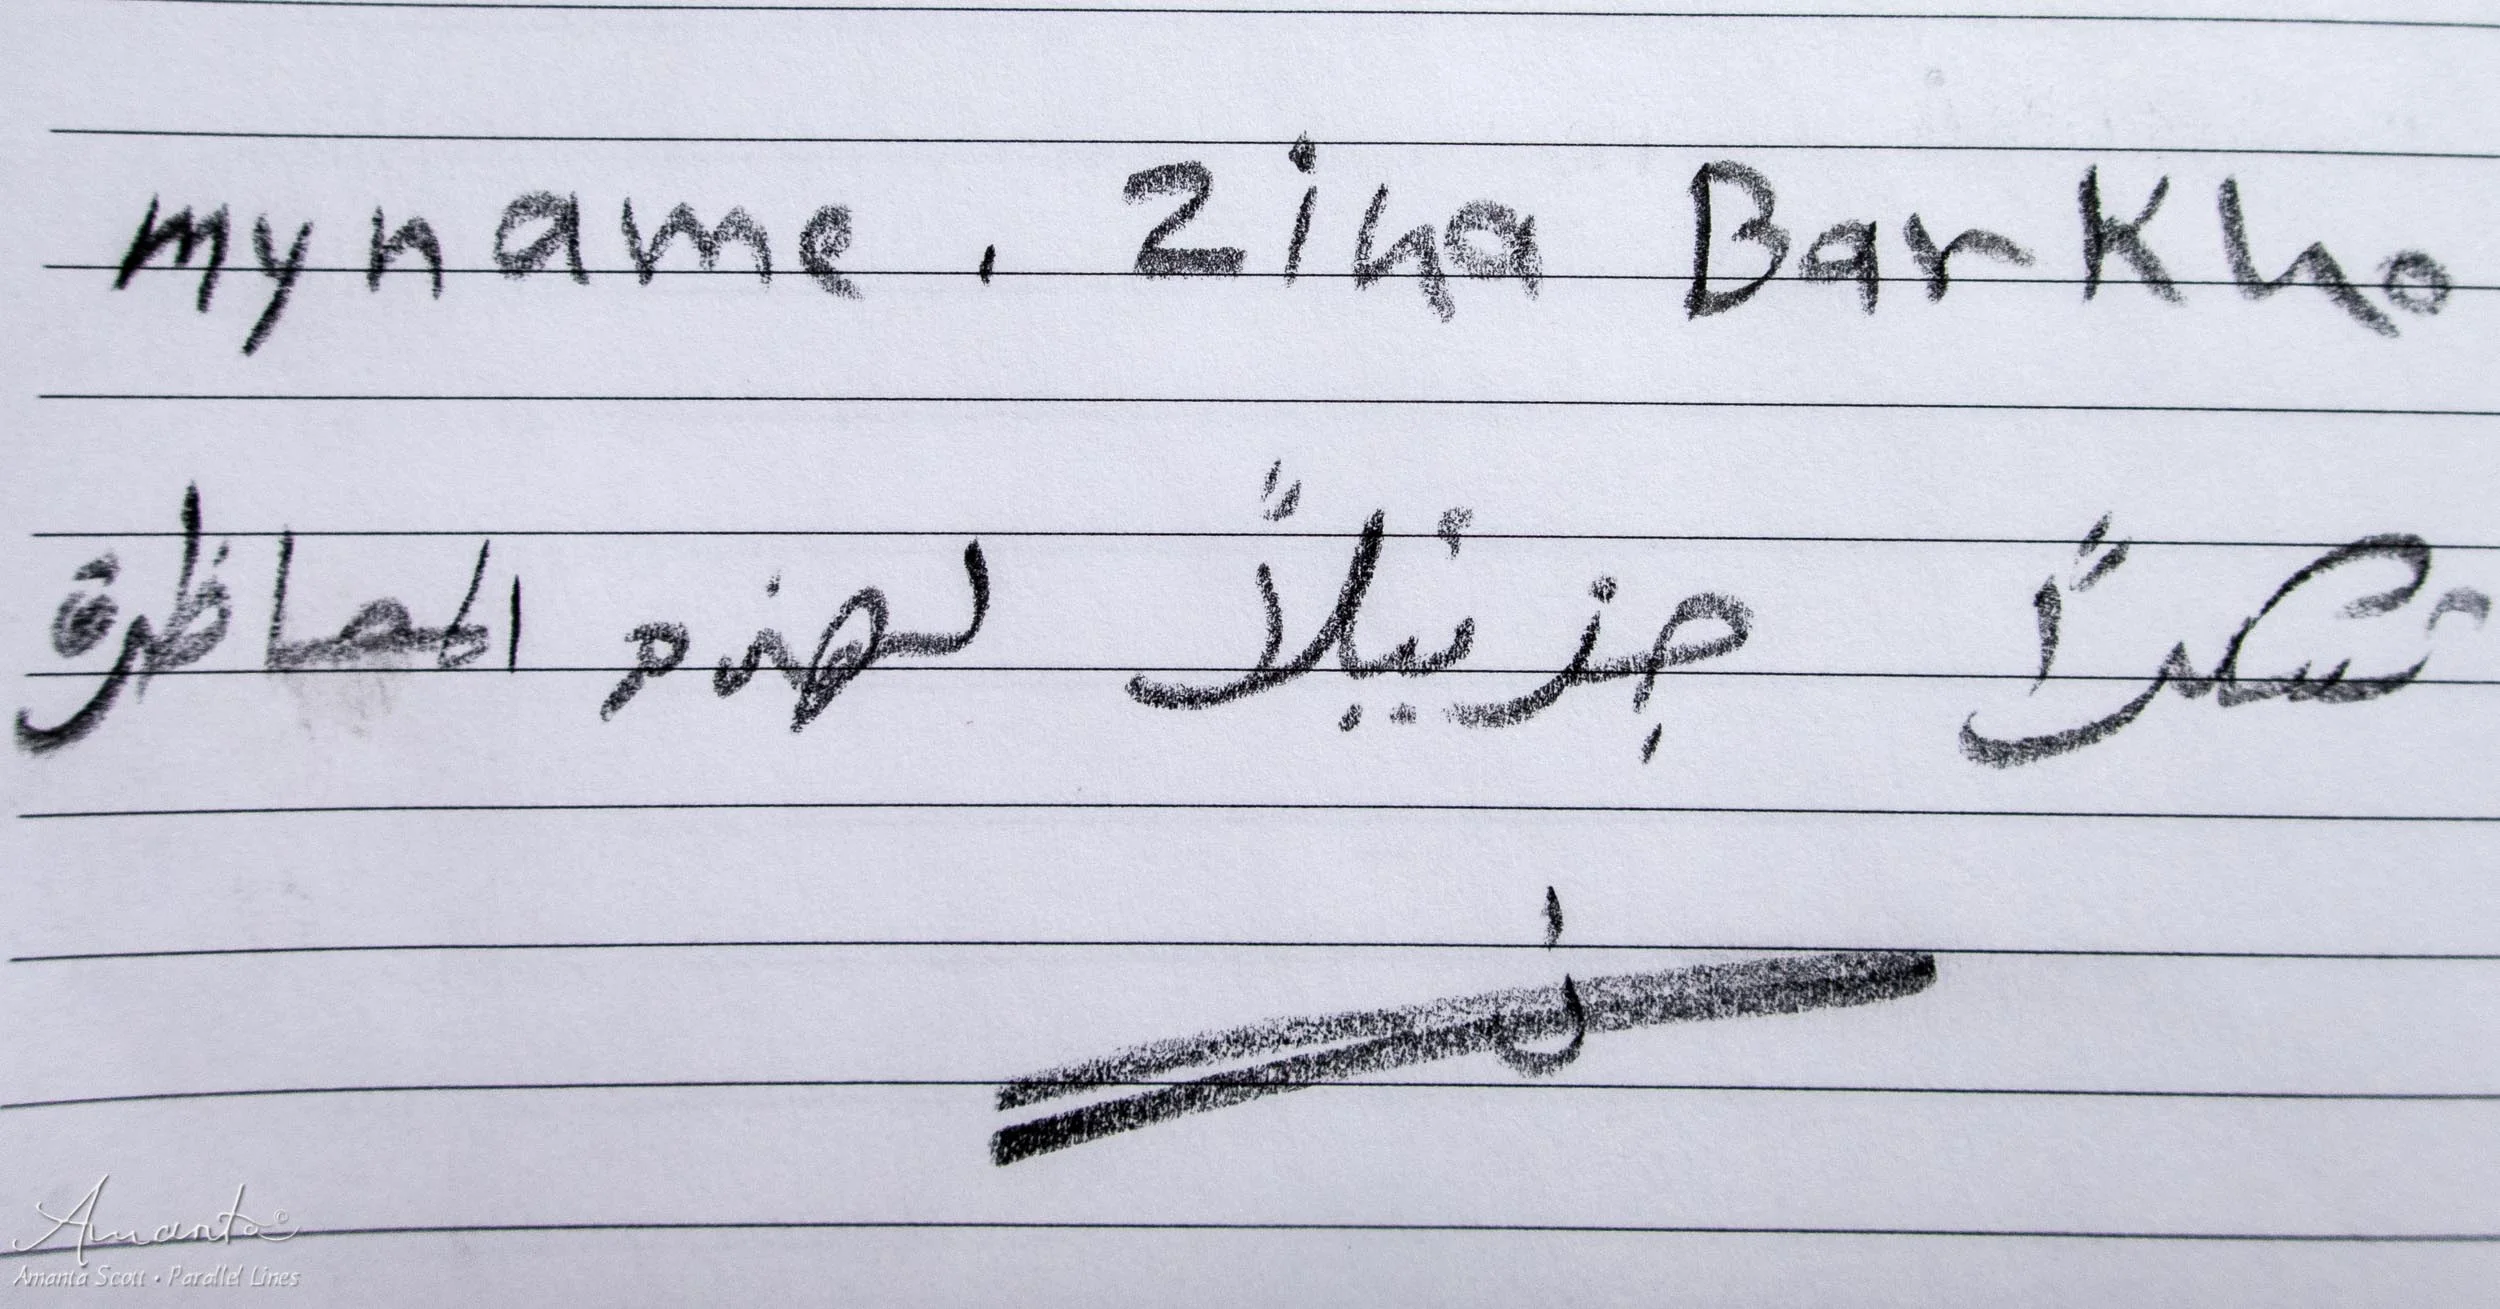 my name . Zina Barkho
شكراً جزئيلاً لهذه المحاظرة
Amanta ©
Amanta Scott • Parallel Lines